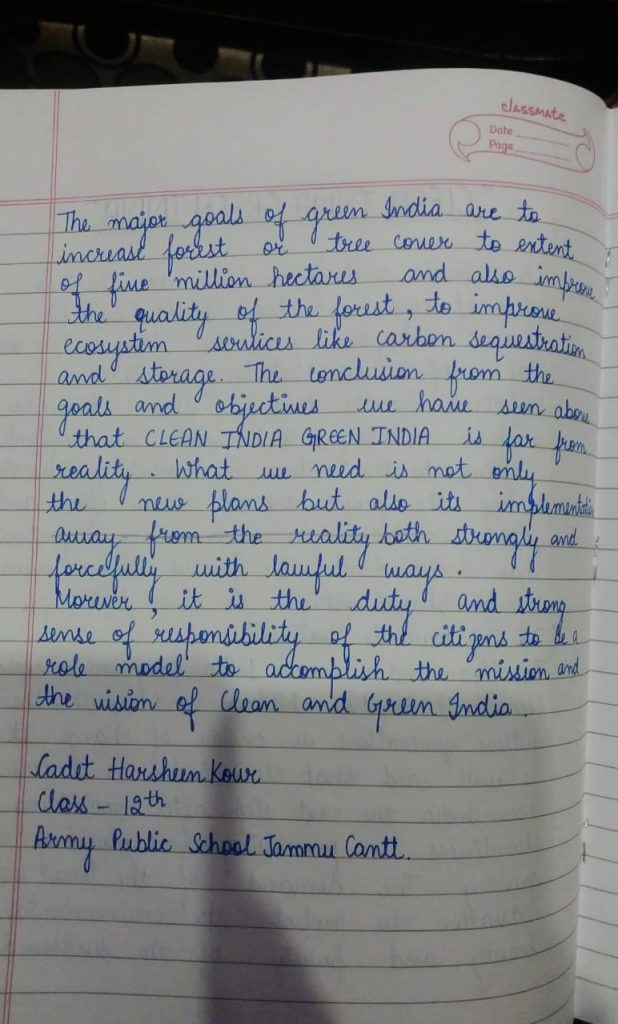 classmate
Date
Page
The major goals of green India are to
increase forest or tree cover to extent
of five million hectares and also improve
the quality of the forest, to improve
ecosystem services like carbon sequestration
and storage. The conclusion from the
goals and objectives we have seen above
that CLEAN INDIA GREEN INDIA is far from
reality. What we need is not only
the new plans but also its implementation
away from the reality both strongly and
forcefully with lawful ways.
Morever, it is the duty and strong
sense of responsibility of the citizens to be a
role model to accomplish the mission and
the vision of Clean and Green India.
Cadet Harsheen Kour
Class - 12th
Army Public School Jammu Cantt.